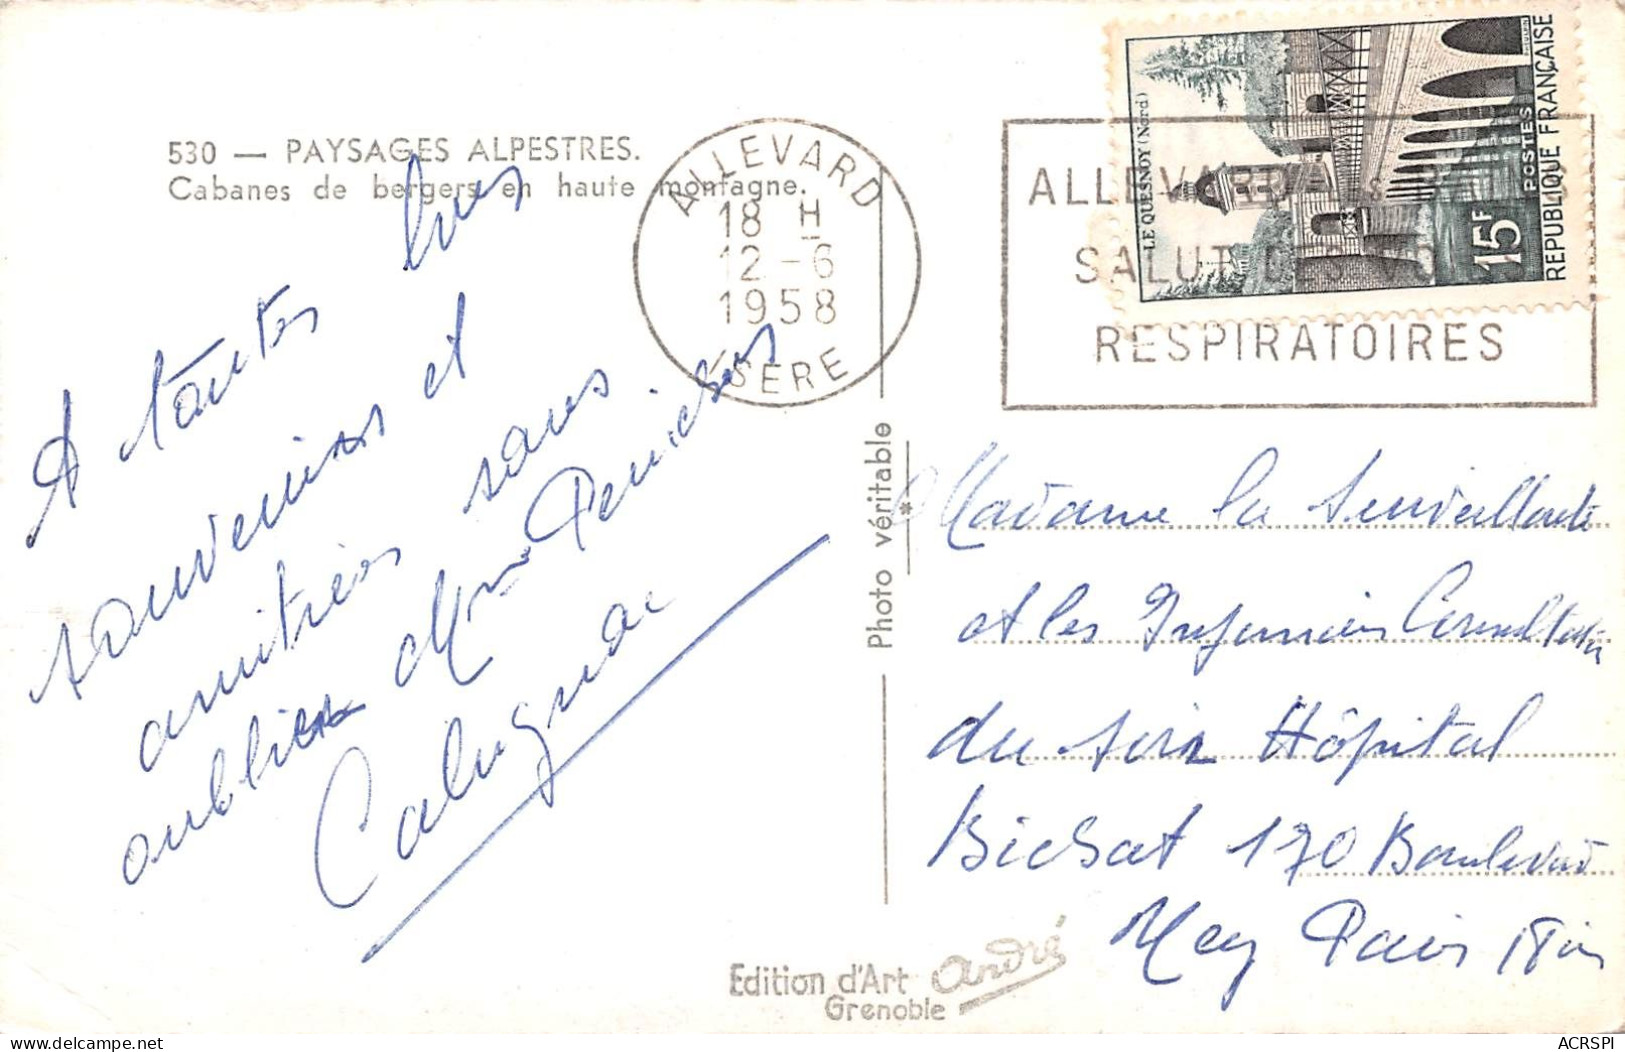 530 — PAYSAGES ALPESTRES.
Cabanes de bergers en haute montagne.
ALLEVARD
18 H
12 - 6
1958
ISERE
ALLEVARD
SALUT DES VO
RESPIRATOIRES
LE QUESNOY (Nord)
POSTES
15F
REPUBLIQUE FRANÇAISE
A toutes
souvenirs et
amitiés sans
oublier Mme
Photo véritable
*
Madame la Surveillante
et les Infirmières Consultation
du soir Hôpital
Bichat 170 Boulevard
Ney Paris 18
Edition d'Art André
Grenoble
ACRSPI